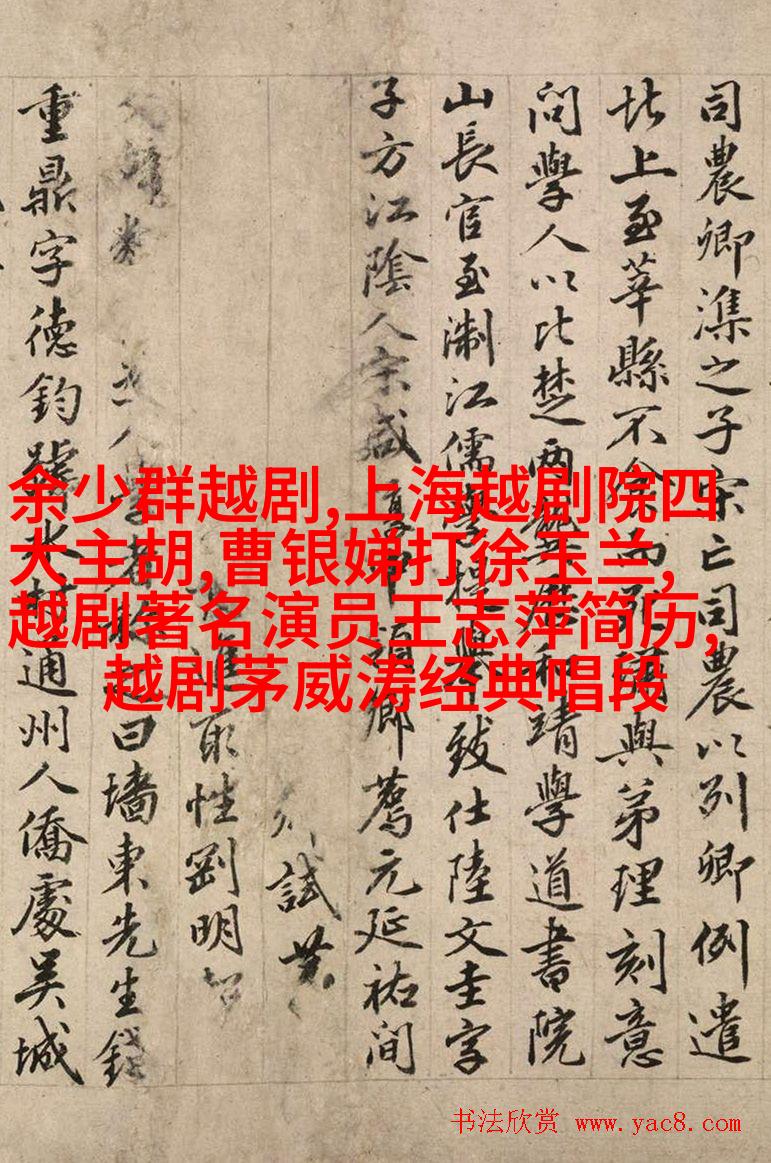 司農卿之子宋亡司農以列卿例遣
北上至莘縣不食而死與弟理刻意
問學人以比楚兩龔君和靖學道書院
山長官至淛江儒學提舉致仕陸文圭字
子方江陰人宋咸鄉薦元延祐間
試
進取性劉明
人學者稱曰墻東先生錢
重鼎字德鈞號水村通州人僑處吳城
余少群越剧,上海越剧院四
大主胡,曹银娣打徐玉兰,
越剧著名演员王志萍简历,
越剧茅威涛经典唱段
书法欣赏 www.yac8.com